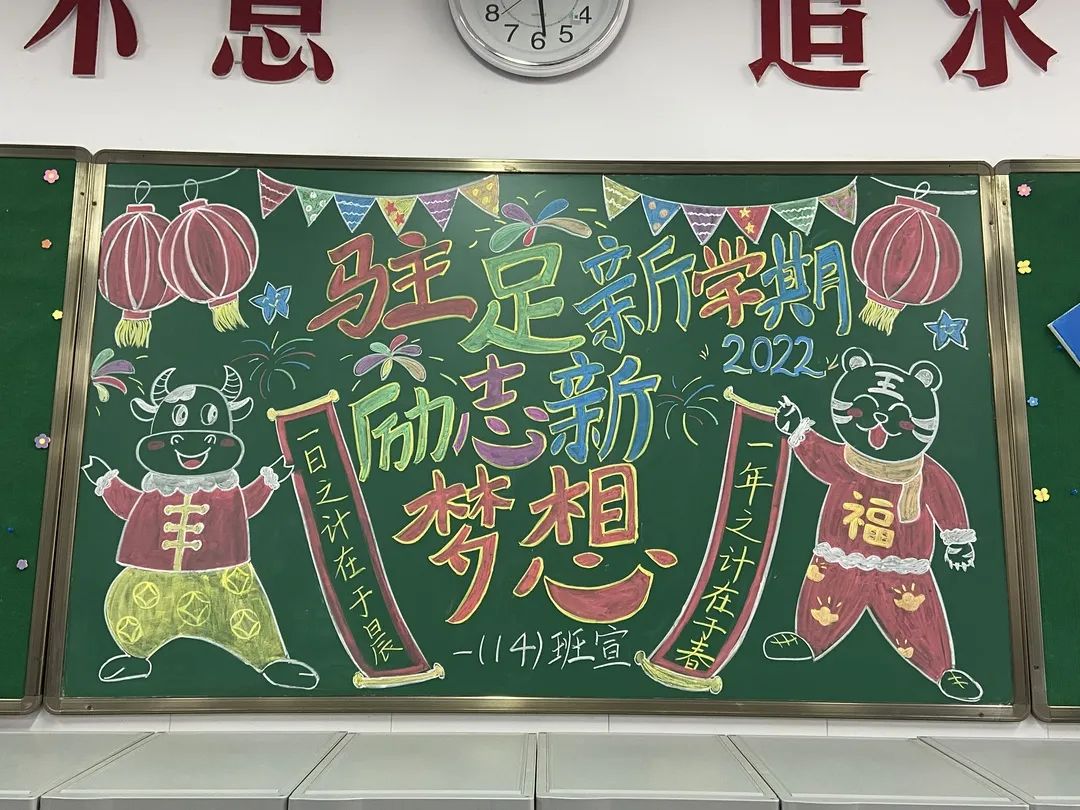 不息
追求
8 7 6 5 4
驻足新学期
2022
励志新
梦想
王
福
一日之计在于晨
一年之计在于春
一(14)班宣